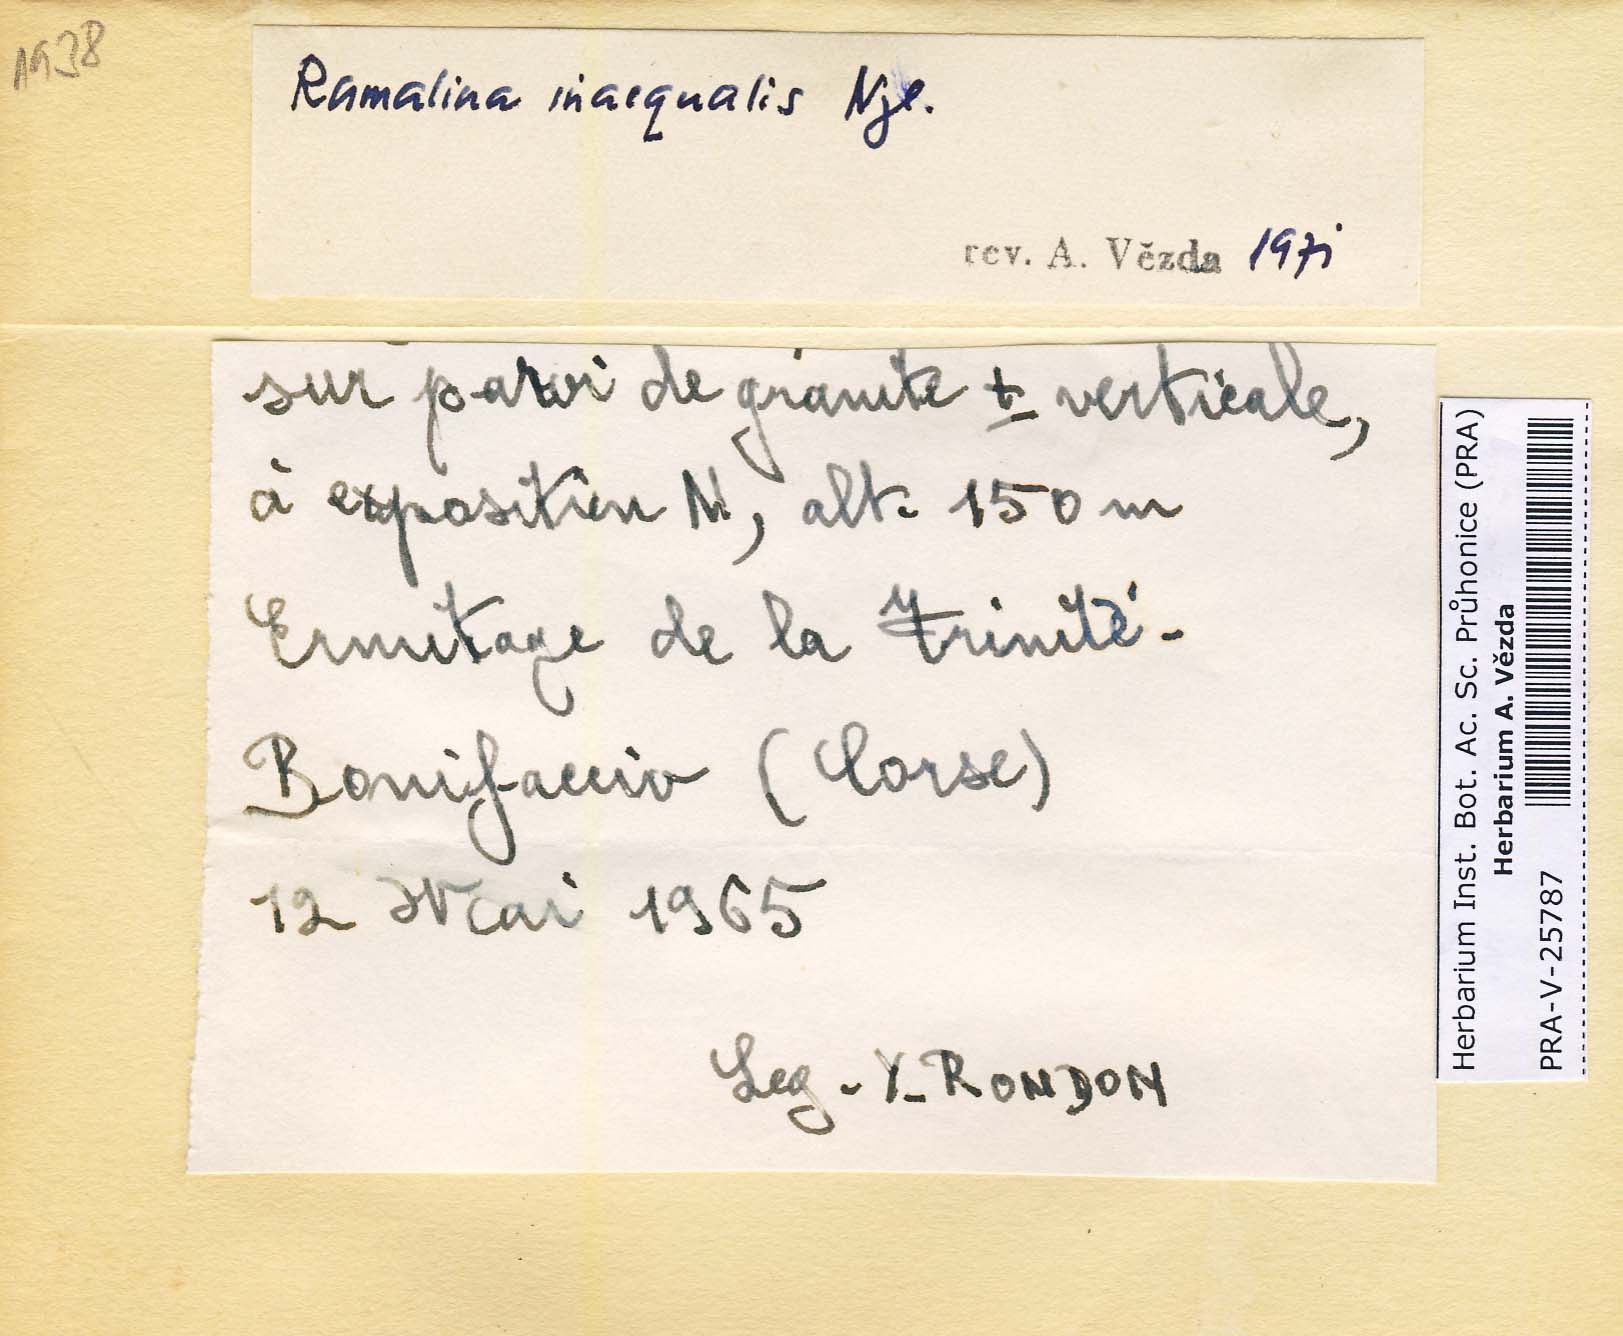 1938
Ramalina inaequalis Nyl.
rev. A. Vězda 1971
sur paroi de granite ± verticale,
à exposition N, alt. 150 m
Ermitage de la Trinité -
Bonifaccio (Corse)
12 Mai 1965
Leg - Y- RONDON
Herbarium Inst. Bot. Ac. Sc. Průhonice (PRA)
Herbarium A. Vězda
PRA-V-25787